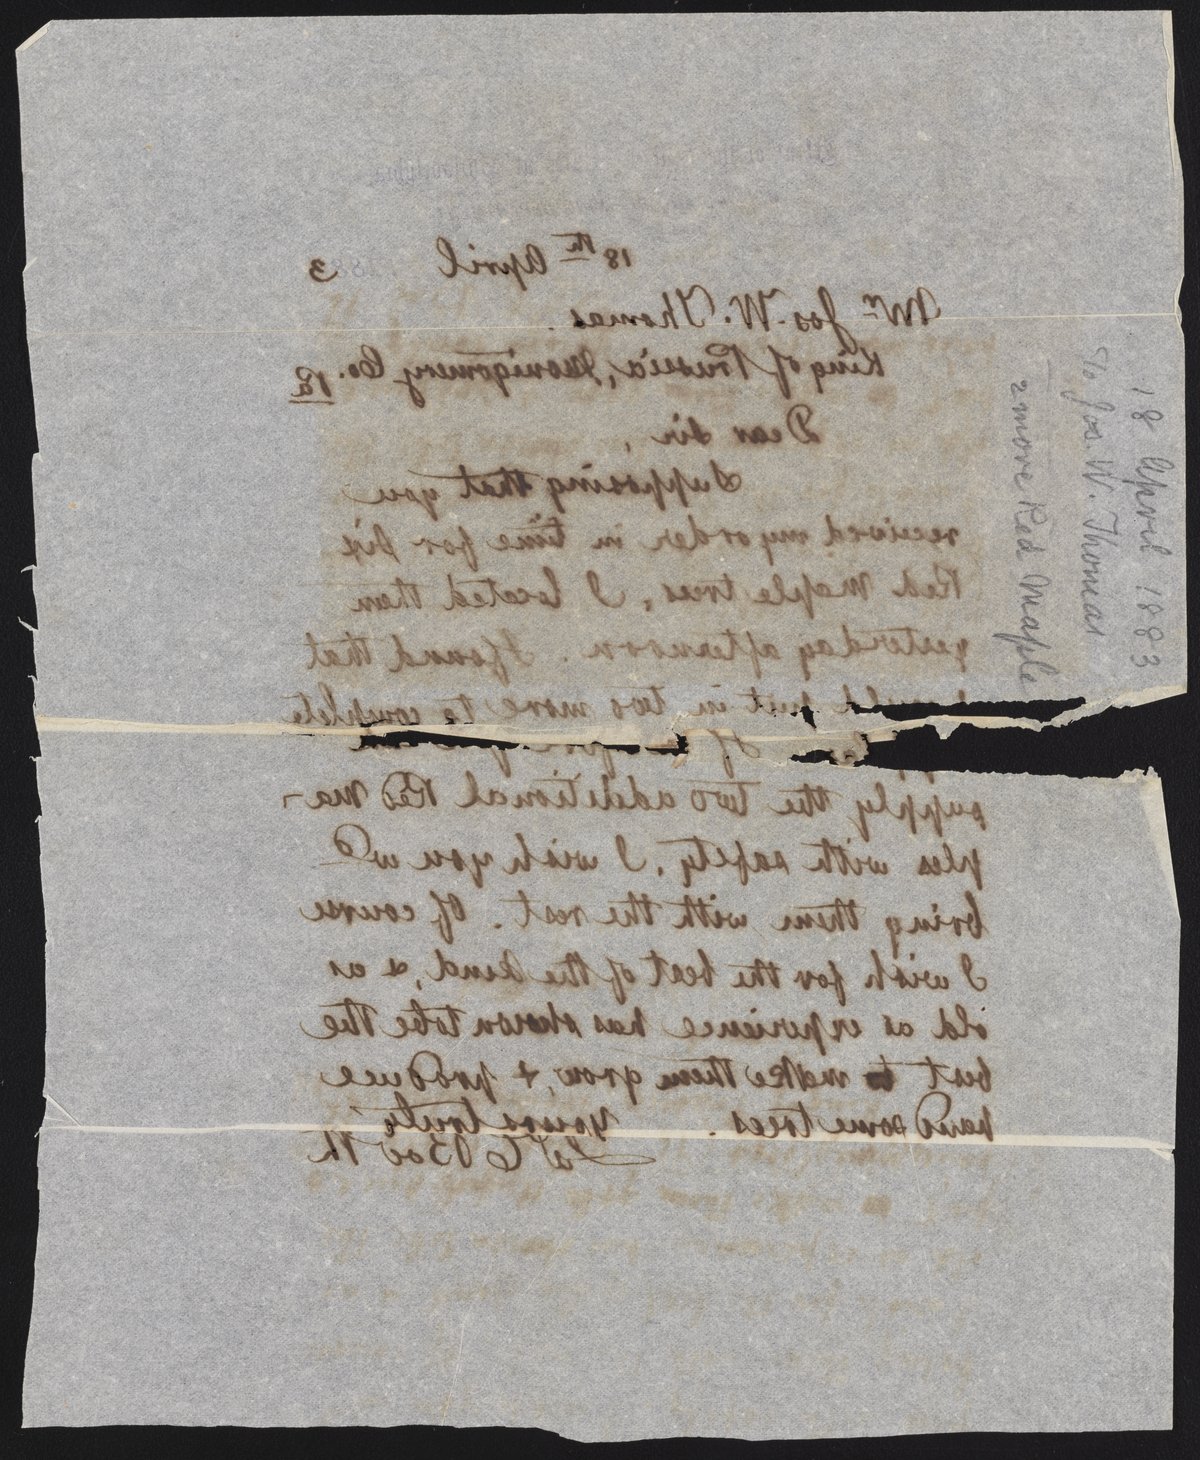 18th April 3
Mr Jos. W. Thomas.
King of Prussia, Montgomery Co. Pa
Dear Sir,
Supposing that you
received my order in time for six
Red Maple trees, I located them
yesterday afternoon. I found that
I could put in two more to complete
If you can
supply the two additional Red Ma-
ples with safety, I wish you wd
bring them with the rest. Of course
I wish for the best of the kind, & as
old as experience has shown to be the
best to make them grow, & produce
handsome trees. Yours truly
Booth
18 April 1883
To Jos. W. Thomas
2 more Red Maple